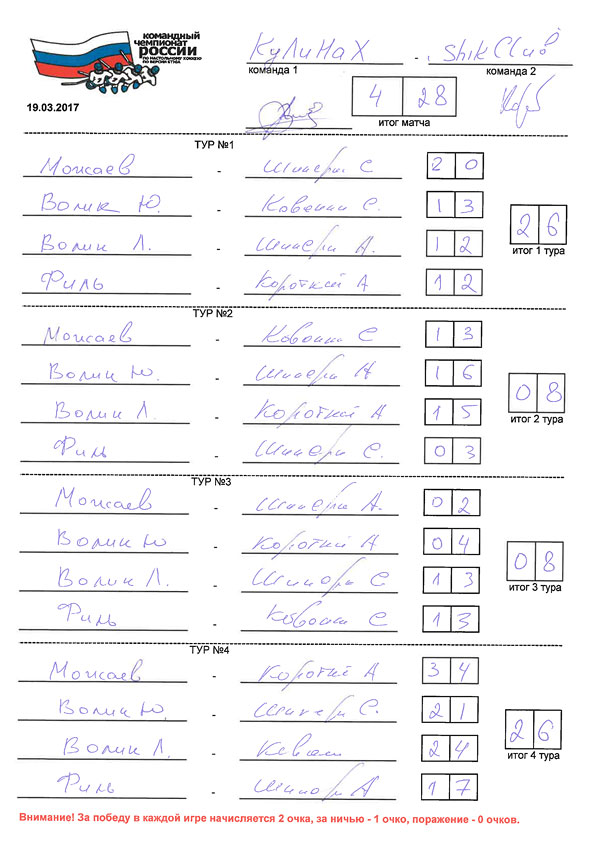 КОМАНДНЫЙ
ЧЕМПИОНАТ
РОССИИ
ПО НАСТОЛЬНОМУ ХОККЕЮ
ПО ВЕРСИИ СТИГА
19.03.2017
КуЛиНаХ - ShikClub
команда 1 команда 2
4 28
итог матча
ТУР №1
Можаев - Шипери С 2 0
Волик Ю. - Ковешни С. 1 3
Волик Л. - Шипери А. 1 2
Филь - Короткий А 1 2
2 6
итог 1 тура
ТУР №2
Можаев - С 1 3
Волик Ю. - Шипери А 1 6
Волик Л. - Короткий А 1 5
Филь - Шипери С. 0 3
0 8
итог 2 тура
ТУР №3
Можаев - Шипери А. 0 2
Волик Ю - Короткий А 0 4
Волик Л. - Шипери С 1 3
Филь - С 1 3
0 8
итог 3 тура
ТУР №4
Можаев - Короткий А 3 4
Волик Ю. - Шипери С. 2 1
Волик Л. - 2 4
Филь - Шипери А 1 7
2 6
итог 4 тура
Внимание! За победу в каждой игре начисляется 2 очка, за ничью - 1 очко, поражение - 0 очков.